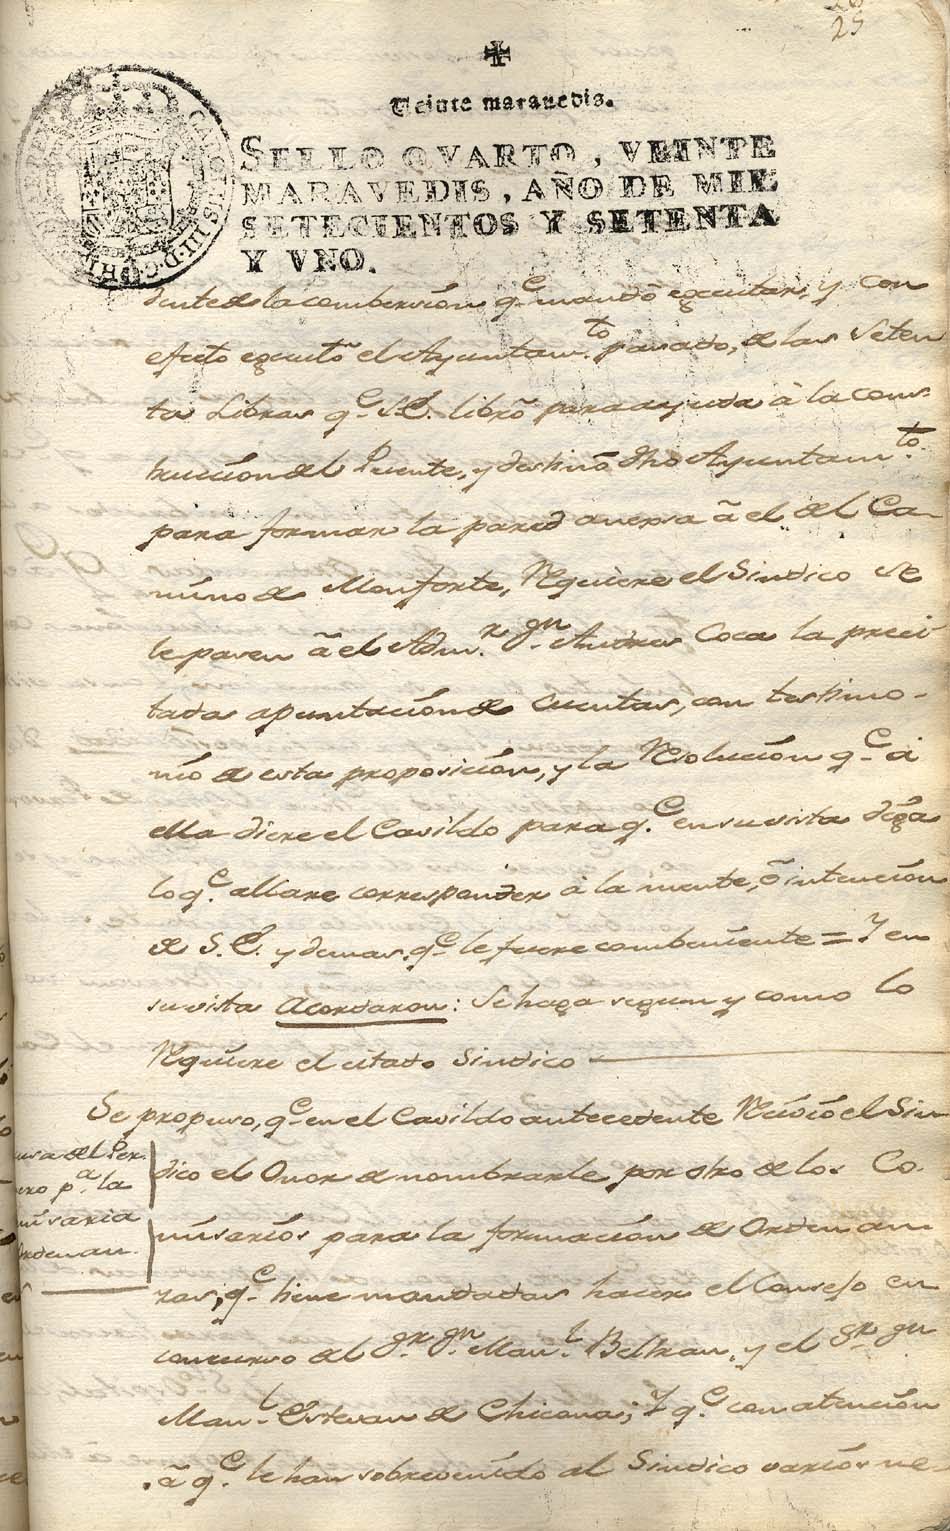 25
Veinte maravedis.
SELLO QVARTO, VEINTE
MARAVEDIS, AÑO DE MIL
SETECIENTOS Y SETENTA
Y VNO.
CAROLUS III D G HI REX
dente de la comberción q.e mandó egecutar, y con
efecto egecutó el Ayuntam.to pasado, de las seten
ta Libras q.e S.E. libró para ayuda à la cons-
truccion del Puente, y destinó dho Ayuntam.to
para formar la pared aversa à el del Ca-
mino de Monforte, Requiere el Sindico se
le pasen à el Adm.r Dn. Andres Coca la preci-
tada apuntación de Cuentas, con testimo-
nio de esta proposición, y la Resolución q.e à
ella diere el Cavildo para q.e en su vista diga
lo q.e allare corresponder à la mente, ò intención
de S.E. y demas q.e le fuere combeniente = Y en
su vista Acordaron: Se haga segun y como lo
Requiere el citado Sindico
Se propuso, q.e en el Cavildo antecedente Recivió el Sin
dico el Onor de nombrarle por otro de los Co-
misarios para la formación de Ordenan
zas, q.e tiene mandadas hacer el Consejo en
concurso del Sr. Dn. Man.l Beltran, y el Sr. Dn.
Man.l Estevan de Chicona; Y q.e con atención
à q.e le han sobrevenido al Sindico varios ne-
del Per.
p.a la
misaria
Ordenan.